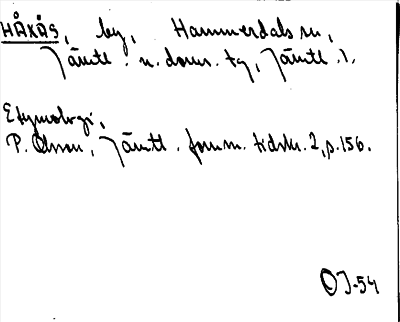 HÅXÅS, by, Hammerdals sn,
Jämtl. n. doms. tg, Jämtl. l.
Etymologi,
P. Olsson, Jämtl. fornm. tidskr. 2, p. 156.
OJ-54